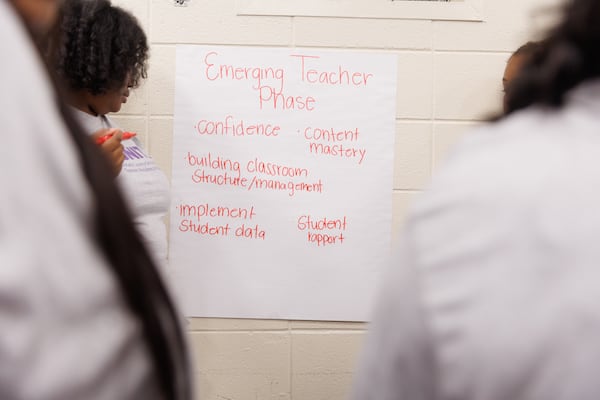 Emerging Teacher
Phase
· Confidence
· Content
mastery
· building classroom
Structure/management
· implement
Student data
Student
rapport